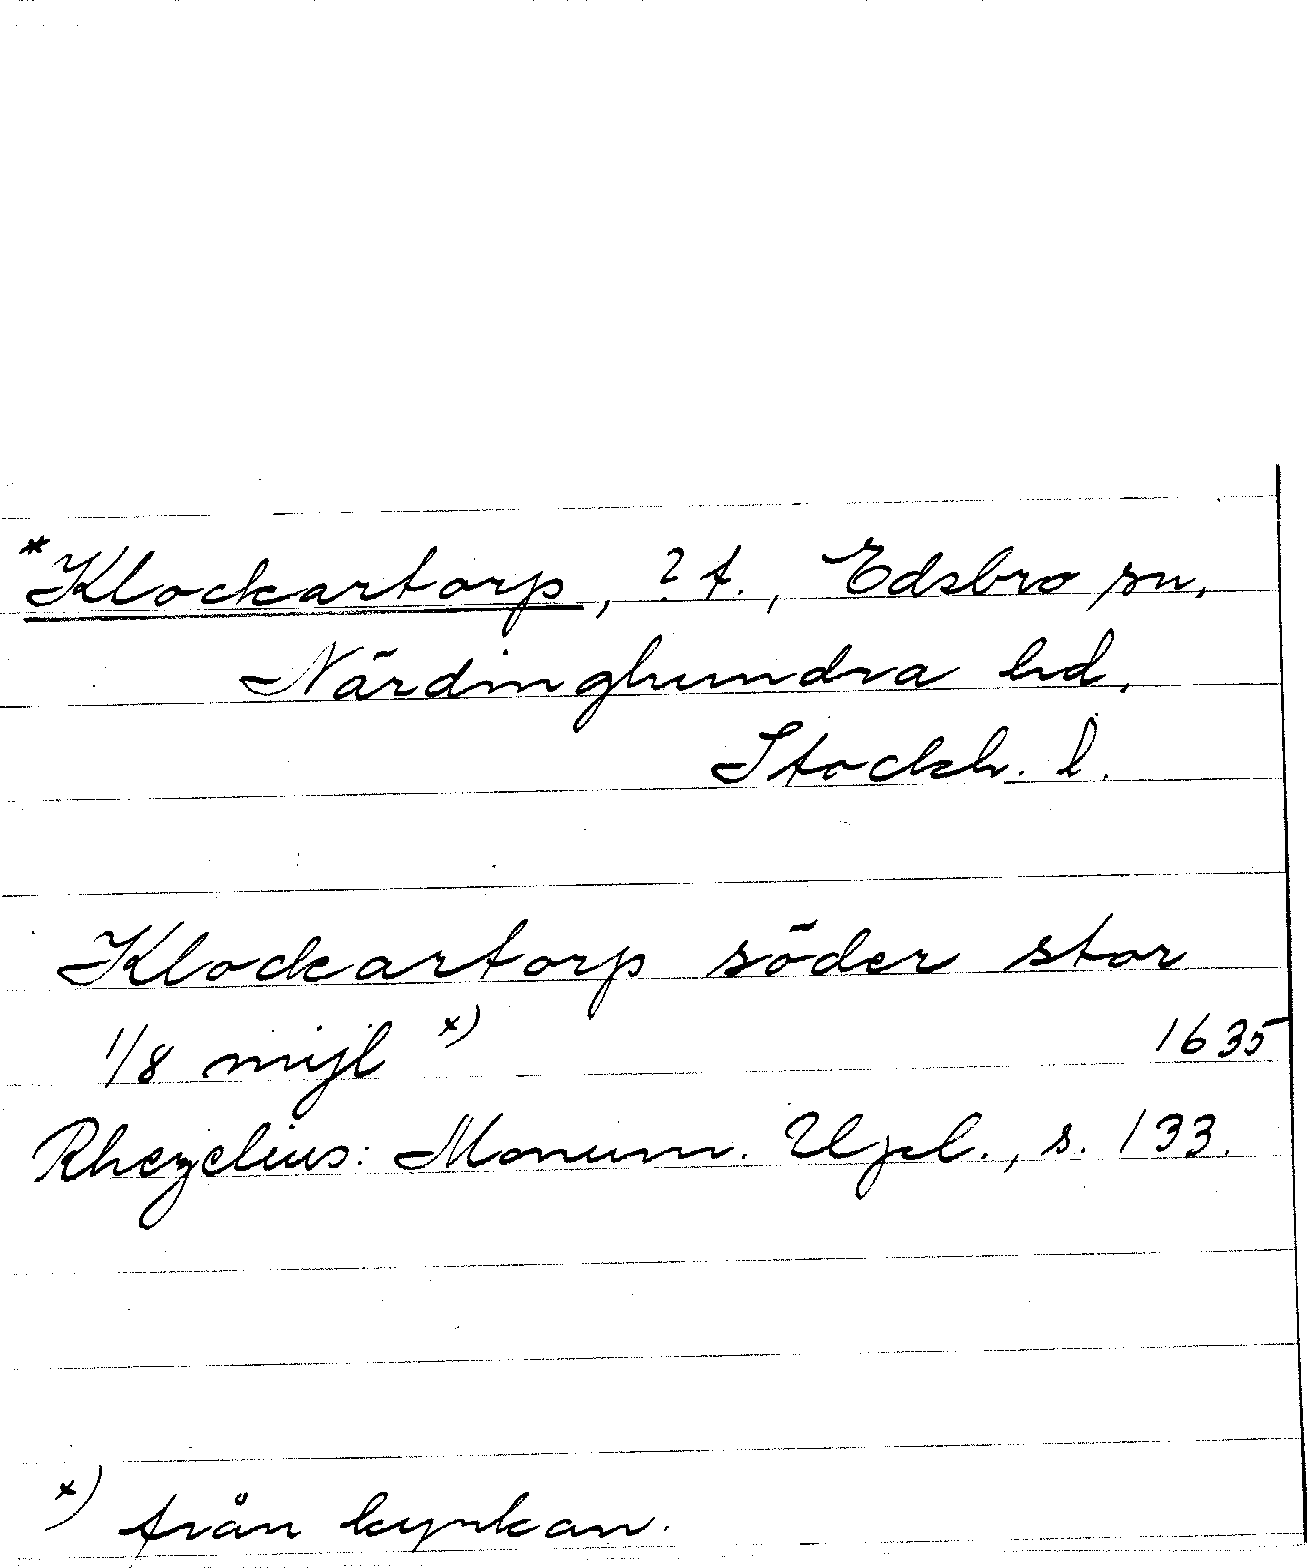 *Klockartorp, ? t., Edsbro sn,
Närdinghundra hd,
Stockh. l.
Klockartorp söder stor
1/8 mijl x) 1635
Rhezelius: Monum. Upl., s. 133.
x) från kyrkan.